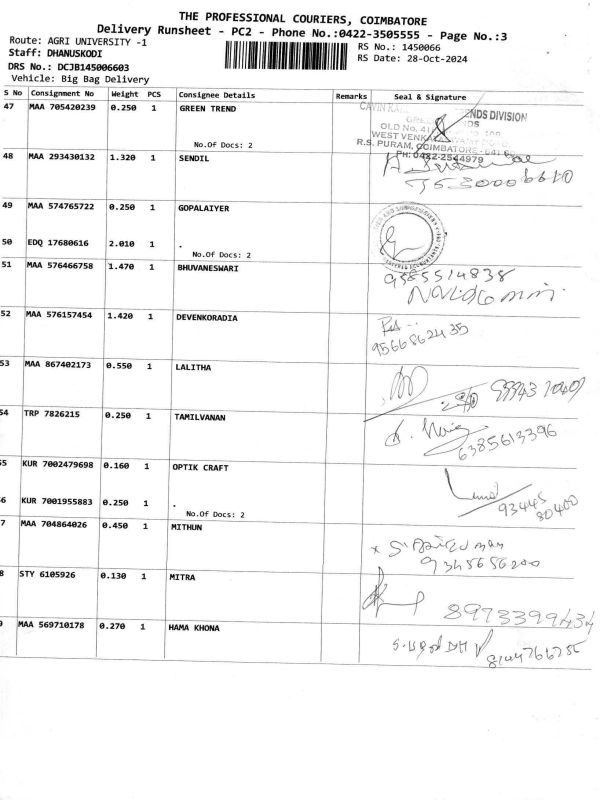 THE PROFESSIONAL COURIERS, COIMBATORE
Delivery Runsheet - PC2 - Phone No.:0422-3505555 - Page No.:3
Route: AGRI UNIVERSITY -1
RS No.: 1450066
Staff: DHANUSKODI
RS Date: 28-Oct-2024
DRS No.: DCJB145006603
Vehicle: Big Bag Delivery
S No Consignment No Weight PCS Consignee Details Remarks Seal & Signature
47 MAA 705420239 0.250 1 GREEN TREND
ENDS DIVISION
OLD No.
WEST VENKA
R.S. PURAM, COIMBATORE
No.Of Docs: 2
PH: 0422-2544979
48 MAA 293430132 1.320 1 SENDIL
49 MAA 574765722 0.250 1 GOPALAIYER
50 EDQ 17680616 2.010 1 .
No.Of Docs: 2
51 MAA 576466758 1.470 1 BHUVANESWARI
9585514838
52 MAA 576157454 1.420 1 DEVENKORADIA
9566862435
53 MAA 867402173 0.550 1 LALITHA
54 TRP 7826215 0.250 1 TAMILVANAN
6385613396
55 KUR 7002479698 0.160 1 OPTIK CRAFT
93445
80400
56 KUR 7001955883 0.250 1 .
No.Of Docs: 2
7 MAA 704864026 0.450 1 MITHUN
9345656200
8 STY 6105926 0.130 1 MITRA
8973399434
9 MAA 569710178 0.270 1 HAMA KHONA